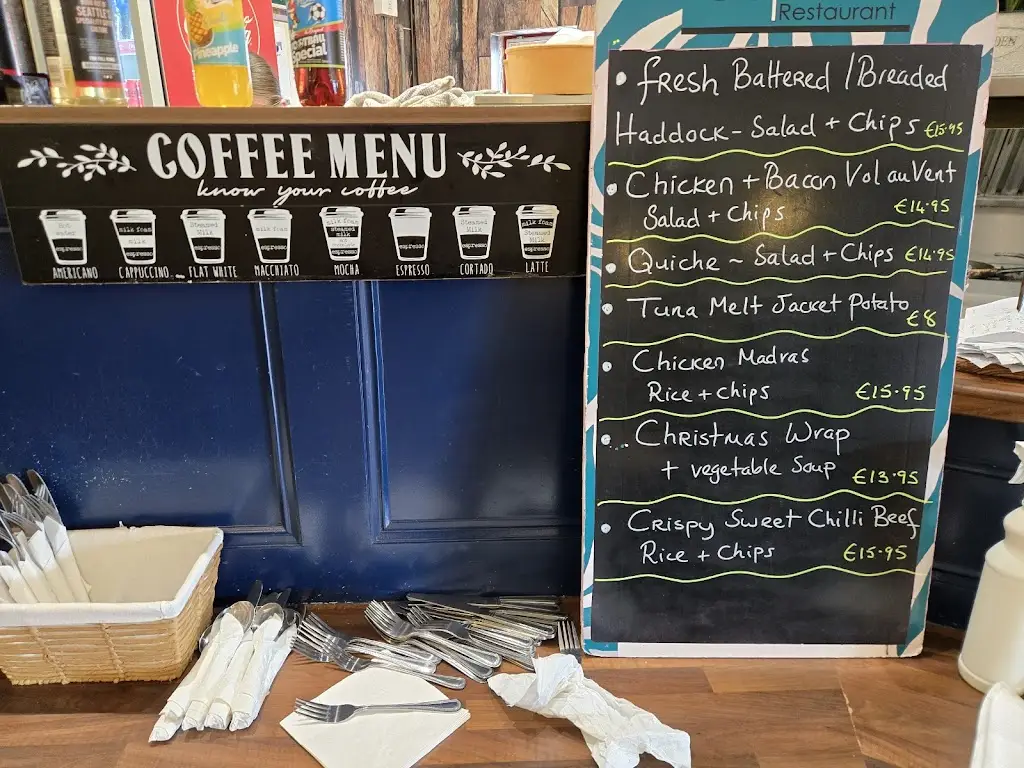 SEATTLE'S
Pineapple
Special
COFFEE MENU
know your coffee
Hot water
espresso
AMERICANO
milk foam
milk
espresso
CAPPUCCINO
Steamed Milk
espresso
FLAT WHITE
milk foam
espresso
MACCHIATO
milk foam
steamed milk
espresso
MOCHA
espresso
ESPRESSO
espresso
CORTADO
milk foam
Steamed Milk
espresso
LATTE
Restaurant
• fresh Battered / Breaded
Haddock - Salad + Chips €15.95
• Chicken + Bacon Vol au Vent
Salad + Chips €14.95
• Quiche ~ Salad + Chips €14.95
• Tuna Melt Jacket Potato €8
• Chicken Madras
Rice + Chips €15.95
• Christmas Wrap
+ vegetable Soup €13.95
• Crispy Sweet Chilli Beef
Rice + Chips €15.95